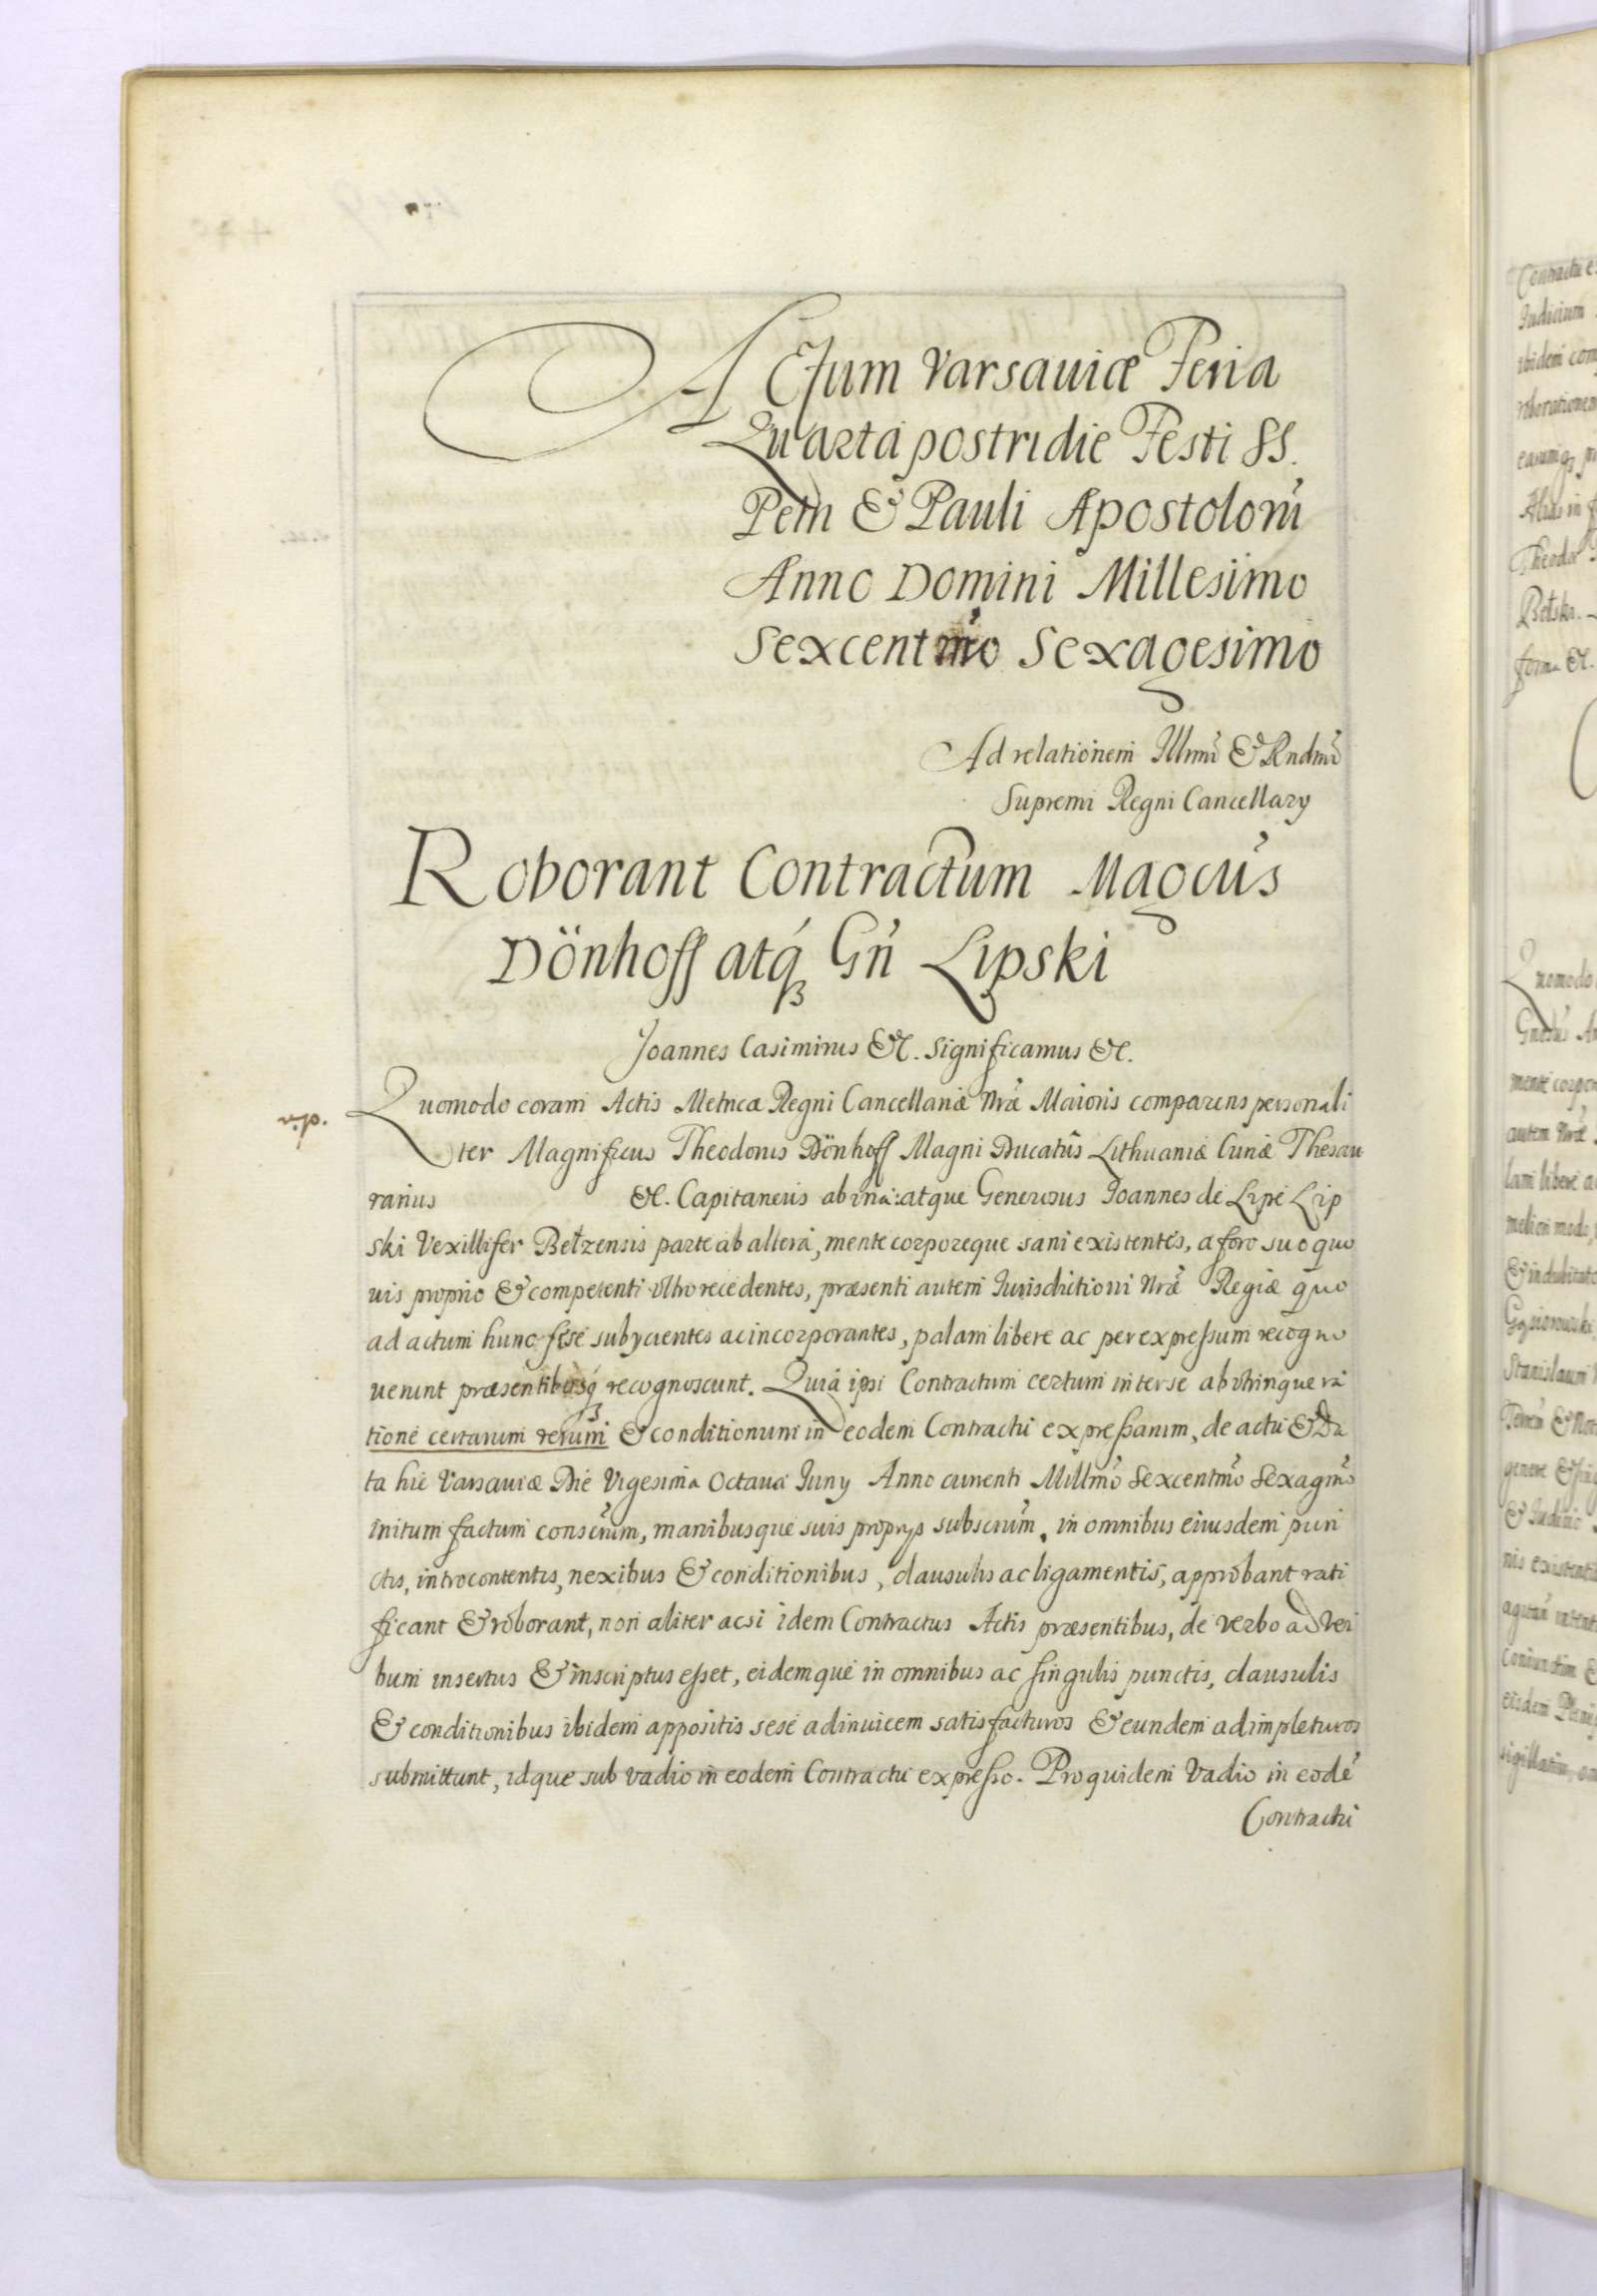 Actum Varsaviæ Feria
Quarta postridie Festi SS.
Petri & Pauli Apostolorū
Anno Domini Millesimo
Sexcentmo Sexagesimo
Ad relationem Illrmi & Rndmi
Supremi Regni Cancellary
Roborant Contractum Magcus
Dönhoff atq́ Gn̄ Lipski
Joannes Casimirus &c. Significamus &c.
Quomodo coram Actis Metricæ Regni Cancellariæ Nræ Maioris comparens personali
ter Magnificus Theodorus Dönhoff Magni Ducatûs Lithuaniæ Curiæ Thesau
rarius &c. Capitaneus ab una: atque Generosus Joannes de Lipé Lip
ski Vexillifer Bełzensis parte ab alterá, mente corporeque sani existentes, a foro suo quo
uis proprio & competenti vltro recedentes, præsenti autem Jurisdictioni Nræ Regiæ quo
ad actum hunc sese subycientes ac incorporantes, palam libere ac per expressum recogno
uerunt præsentibusq́ recognoscunt. Quia ipsi Contractum certum inter se ab vtrinque ra
tione certarum rerum & conditionum in eodem Contractu expressarum, de actu & Da
ta hic Varsauiæ Die Vigesima Octaua Juny Anno currenti Millmo Sexcentmo Sexagmo
initum factum conscrium, manibusque suis proprys subscrium, in omnibus eiusdem pun
ctis, introcontentis, nexibus & conditionibus, clausulis ac ligamentis, approbant rati
ficant & roborant, non aliter acsi idem Contractus Actis præsentibus, de verbo ad ver
bum insertus & inscriptus esset, eidemque in omnibus ac singulis punctis, clausulis
& conditionibus ibidem appositis sese adinuicem satisfacturos & eundem adimpleturos
submittunt, idque sub vadio in eodem Contractu expresso. Pro quidem Vadio in eodē
Contractu